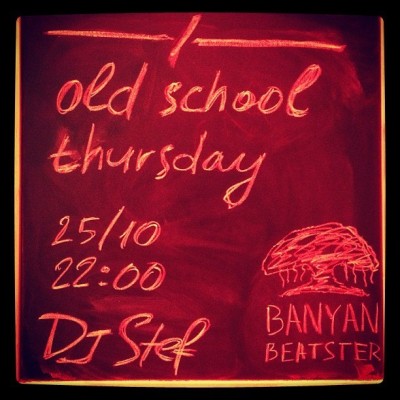 old school
thursday
25/10
22:00
DJ Stef
BANYAN
BEATSTER